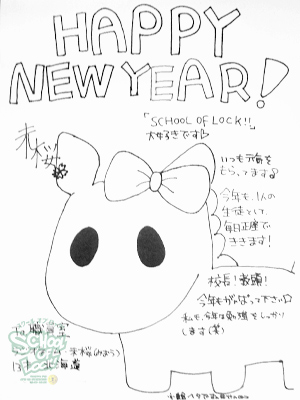 HAPPY
NEW YEAR!
「SCHOOL OF LOCK!!」
大好きです♡
未桜
いつも元気を
もらってます♪
今年も、1人の
生徒として、
毎日正座で
ききます!
校長!教頭!
今年もがんばって下さい☆
私も、今年は勉強をしっかり
します(笑)
to 職員室
未桜(みおう)
SCHOOL
OF
LOCK!
海道